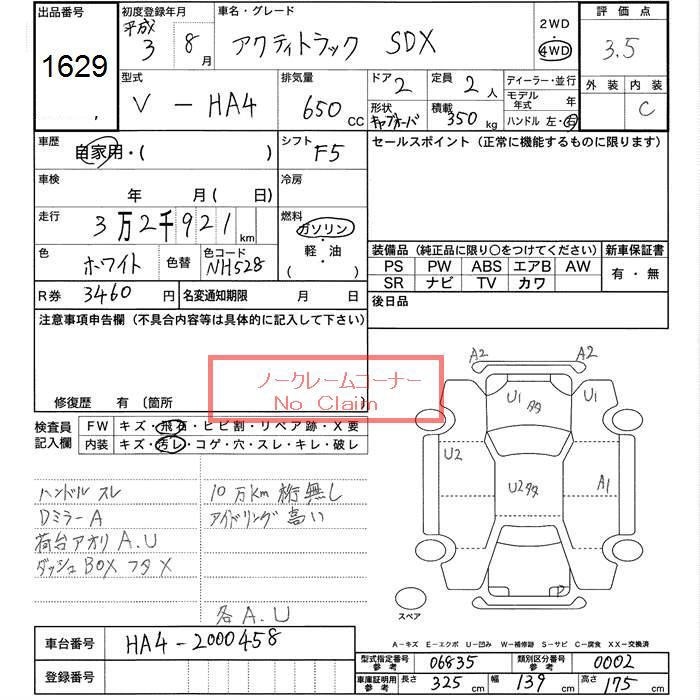 出品番号 初度登録年月 車名・グレード 2WD 評価点
1629 平成 3 8月 アクティトラック SDX ・ 4WD 3.5
型式 排気量 ドア 2 定員 2人 ディーラー・並行 外装 内装
V-HA4 650 CC 形状 キャブオーバ 積載 350 kg モデル年式 年 C
ハンドル 左・右
車歴 自家用・( ) シフト F5 セールスポイント(正常に機能するものに限ります)
車検 年 月(日) 冷房
走行 3万2千921km 燃料 ガソリン
・
軽・油
( )
色 ホワイト 色替 色コード NH528
装備品(純正品に限り○をつけてください) 新車保証書
PS PW ABS エアB AW 有・無
SR ナビ TV カワ
R券 3460円 名変通知期限 月 日 後日品
注意事項申告欄(不具合内容等は具体的に記入して下さい)
ノークレームコーナー
No Claim
修復歴 有(箇所 )
検査員記入欄 FW キズ・飛石・ヒビ割・リペア跡・X要
内装 キズ・汚レ・コゲ・穴・スレ・キレ・破レ
ハンドル スレ 10万km 桁無し
Dミラー A アイドリング高い
荷台アオリ A.U
ダッシュBOX フタ X
各 A.U
A2 A2
U1 U1
U2 A1
U2
P
スペア
A-キズ E-エクボ U-凹み W-補修跡 S-サビ C-腐食 XX-交換済
車台番号 HA4-2000458
登録番号
型式指定番号 参考 06835 類別区分番号 参考 0002
車庫証明用 参考 長さ 325cm 幅 139cm 高さ 175cm